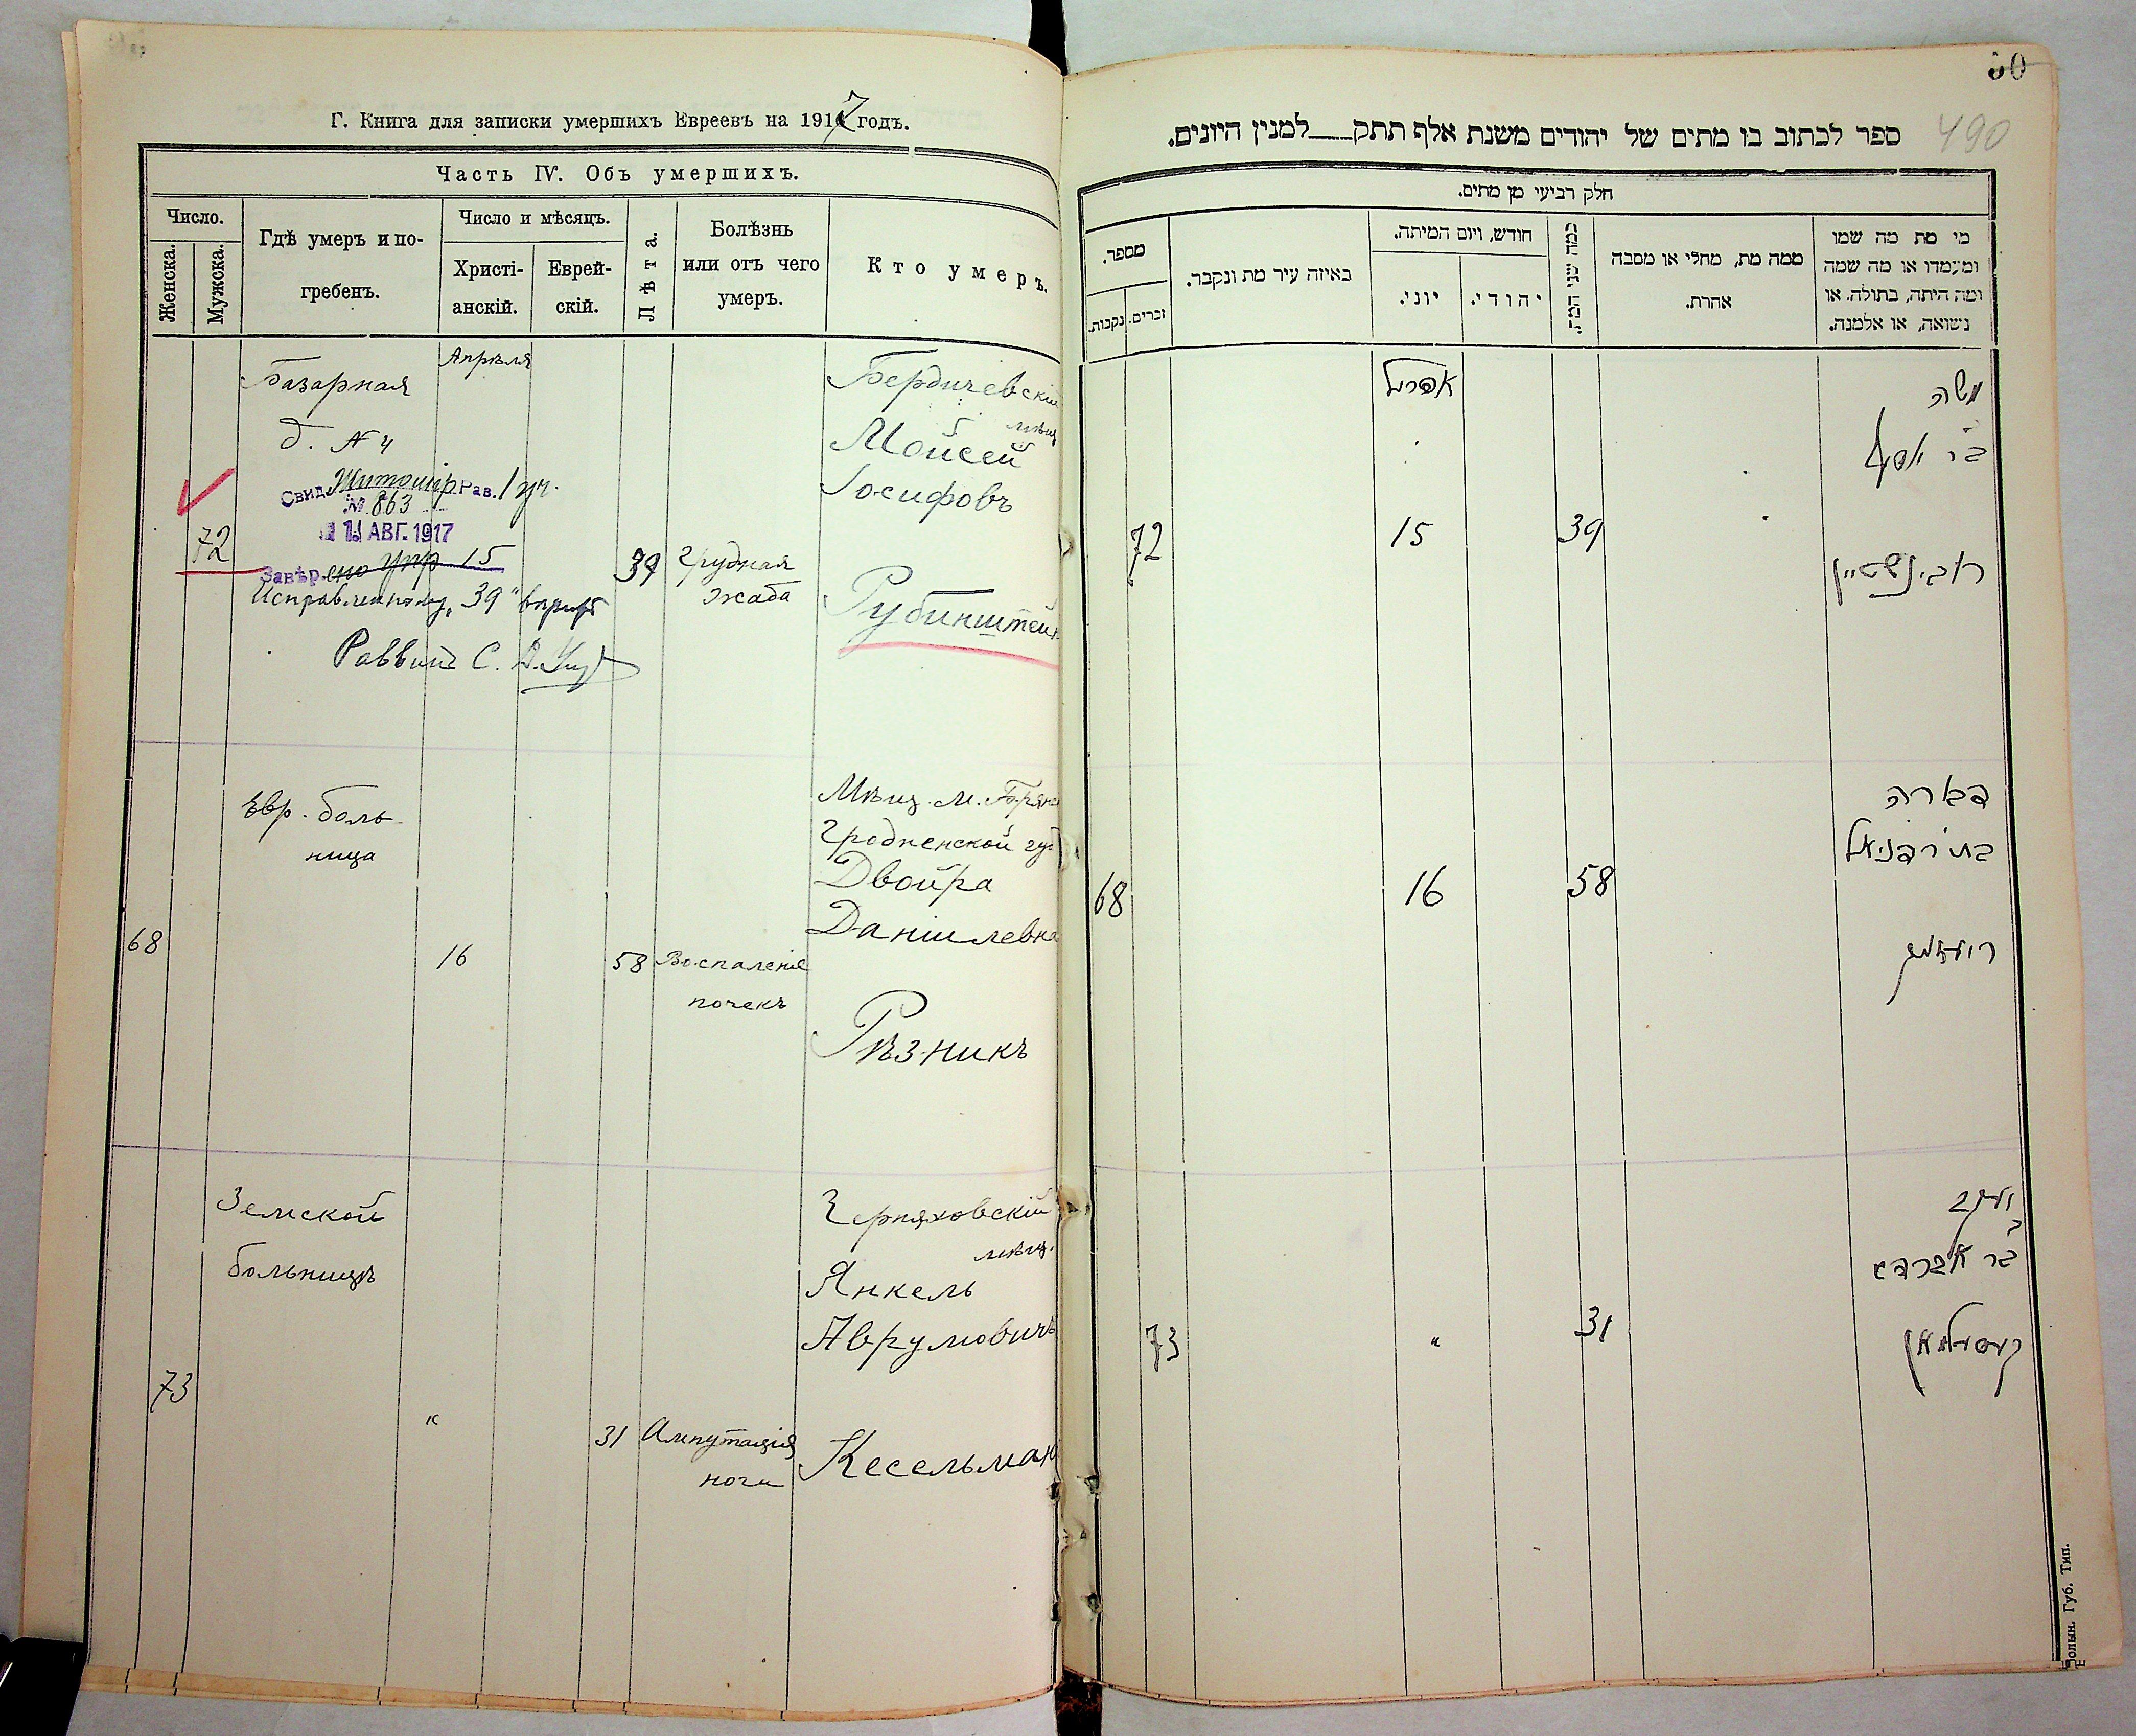 Г. Книга для записки умершихъ Евреевъ на 1917 годъ.
Часть IV. Объ умершихъ.
Число.
Женска.
Мужска.
Гдѣ умеръ и по-
гребенъ.
Число и мѣсяцъ.
Христі-
анскій.
Еврей-
скій.
Лѣта.
Болѣзнь
или отъ чего
умеръ.
Кто умеръ.
Апрѣля
Базарная
д. № 4
Свид. Житомір. Рав. 1 уч.
№ 863
11 АВГ. 1917
72
Завѣр. 15
Исправленному „39" вѣрить
Раввинъ С.
39
Грудная
жаба
Бердичевскій
мѣщ
Мойсей
Іосифовъ
Рубинштейн
Евр. боль
ница
68
16
58
Воспаленіе
почекъ
Мѣщ. м.
Гродненской губ
Двойра
Даніилевна
Рѣзникъ
Земской
больницѣ
73
"
31
Ампутація
ноги
Черняховскій
мѣщ.
Янкель
Аврумовичъ
Кесельман
50
490
ספר לכתוב בו מתים של יהודים משנת אלף תתק___למנין היונים.
חלק רביעי מן מתים.
מספר.
זכרים.
נקבות.
באיזה עיר מת ונקבר.
חודש, ויום המיתה.
יוני.
יהודי.
כמה שני המת.
ממה מת, מחלי או מסבה
אחרת.
מי מת מה שמו
ומעמדו או מה שמה
ומה היתה, בתולה, או
נשואה, או אלמנה.
אפריל
72
15
39
משה
בר יוסף
רובינשטיין
68
16
58
דבורה
בת ר דניאל
רעזניק
73
"
31
יעקב
בר אברהם
קעסעלמאן
Волын. Губ. Тип.